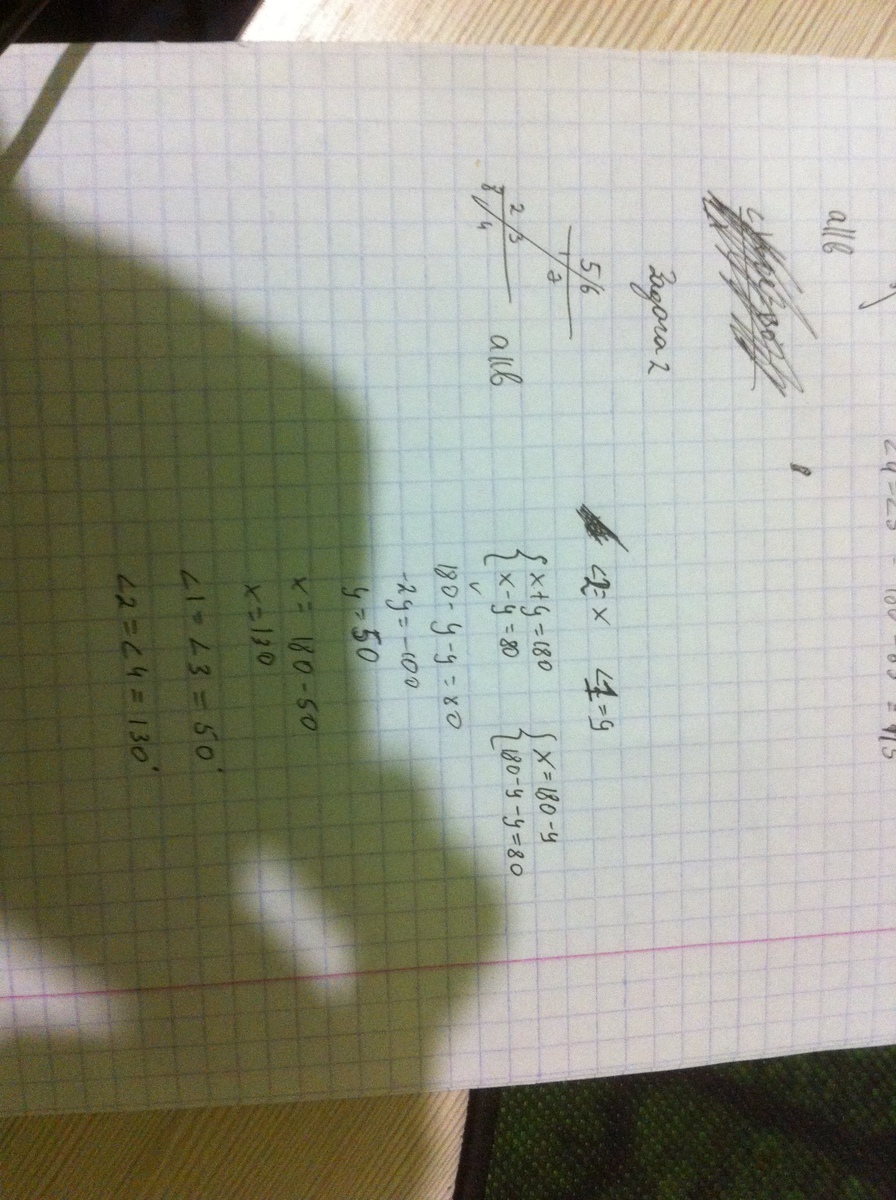 a||b
Задача 2
5/6
7
2 3
8 4
a||b
∠2=x ∠1=y
{x+y=180
{x-y=80
{x=180-y
{180-y-y=80
180-y-y=80
-2y=-100
y=50
x=180-50
x=130
∠1=∠3=50°
∠2=∠4=130°